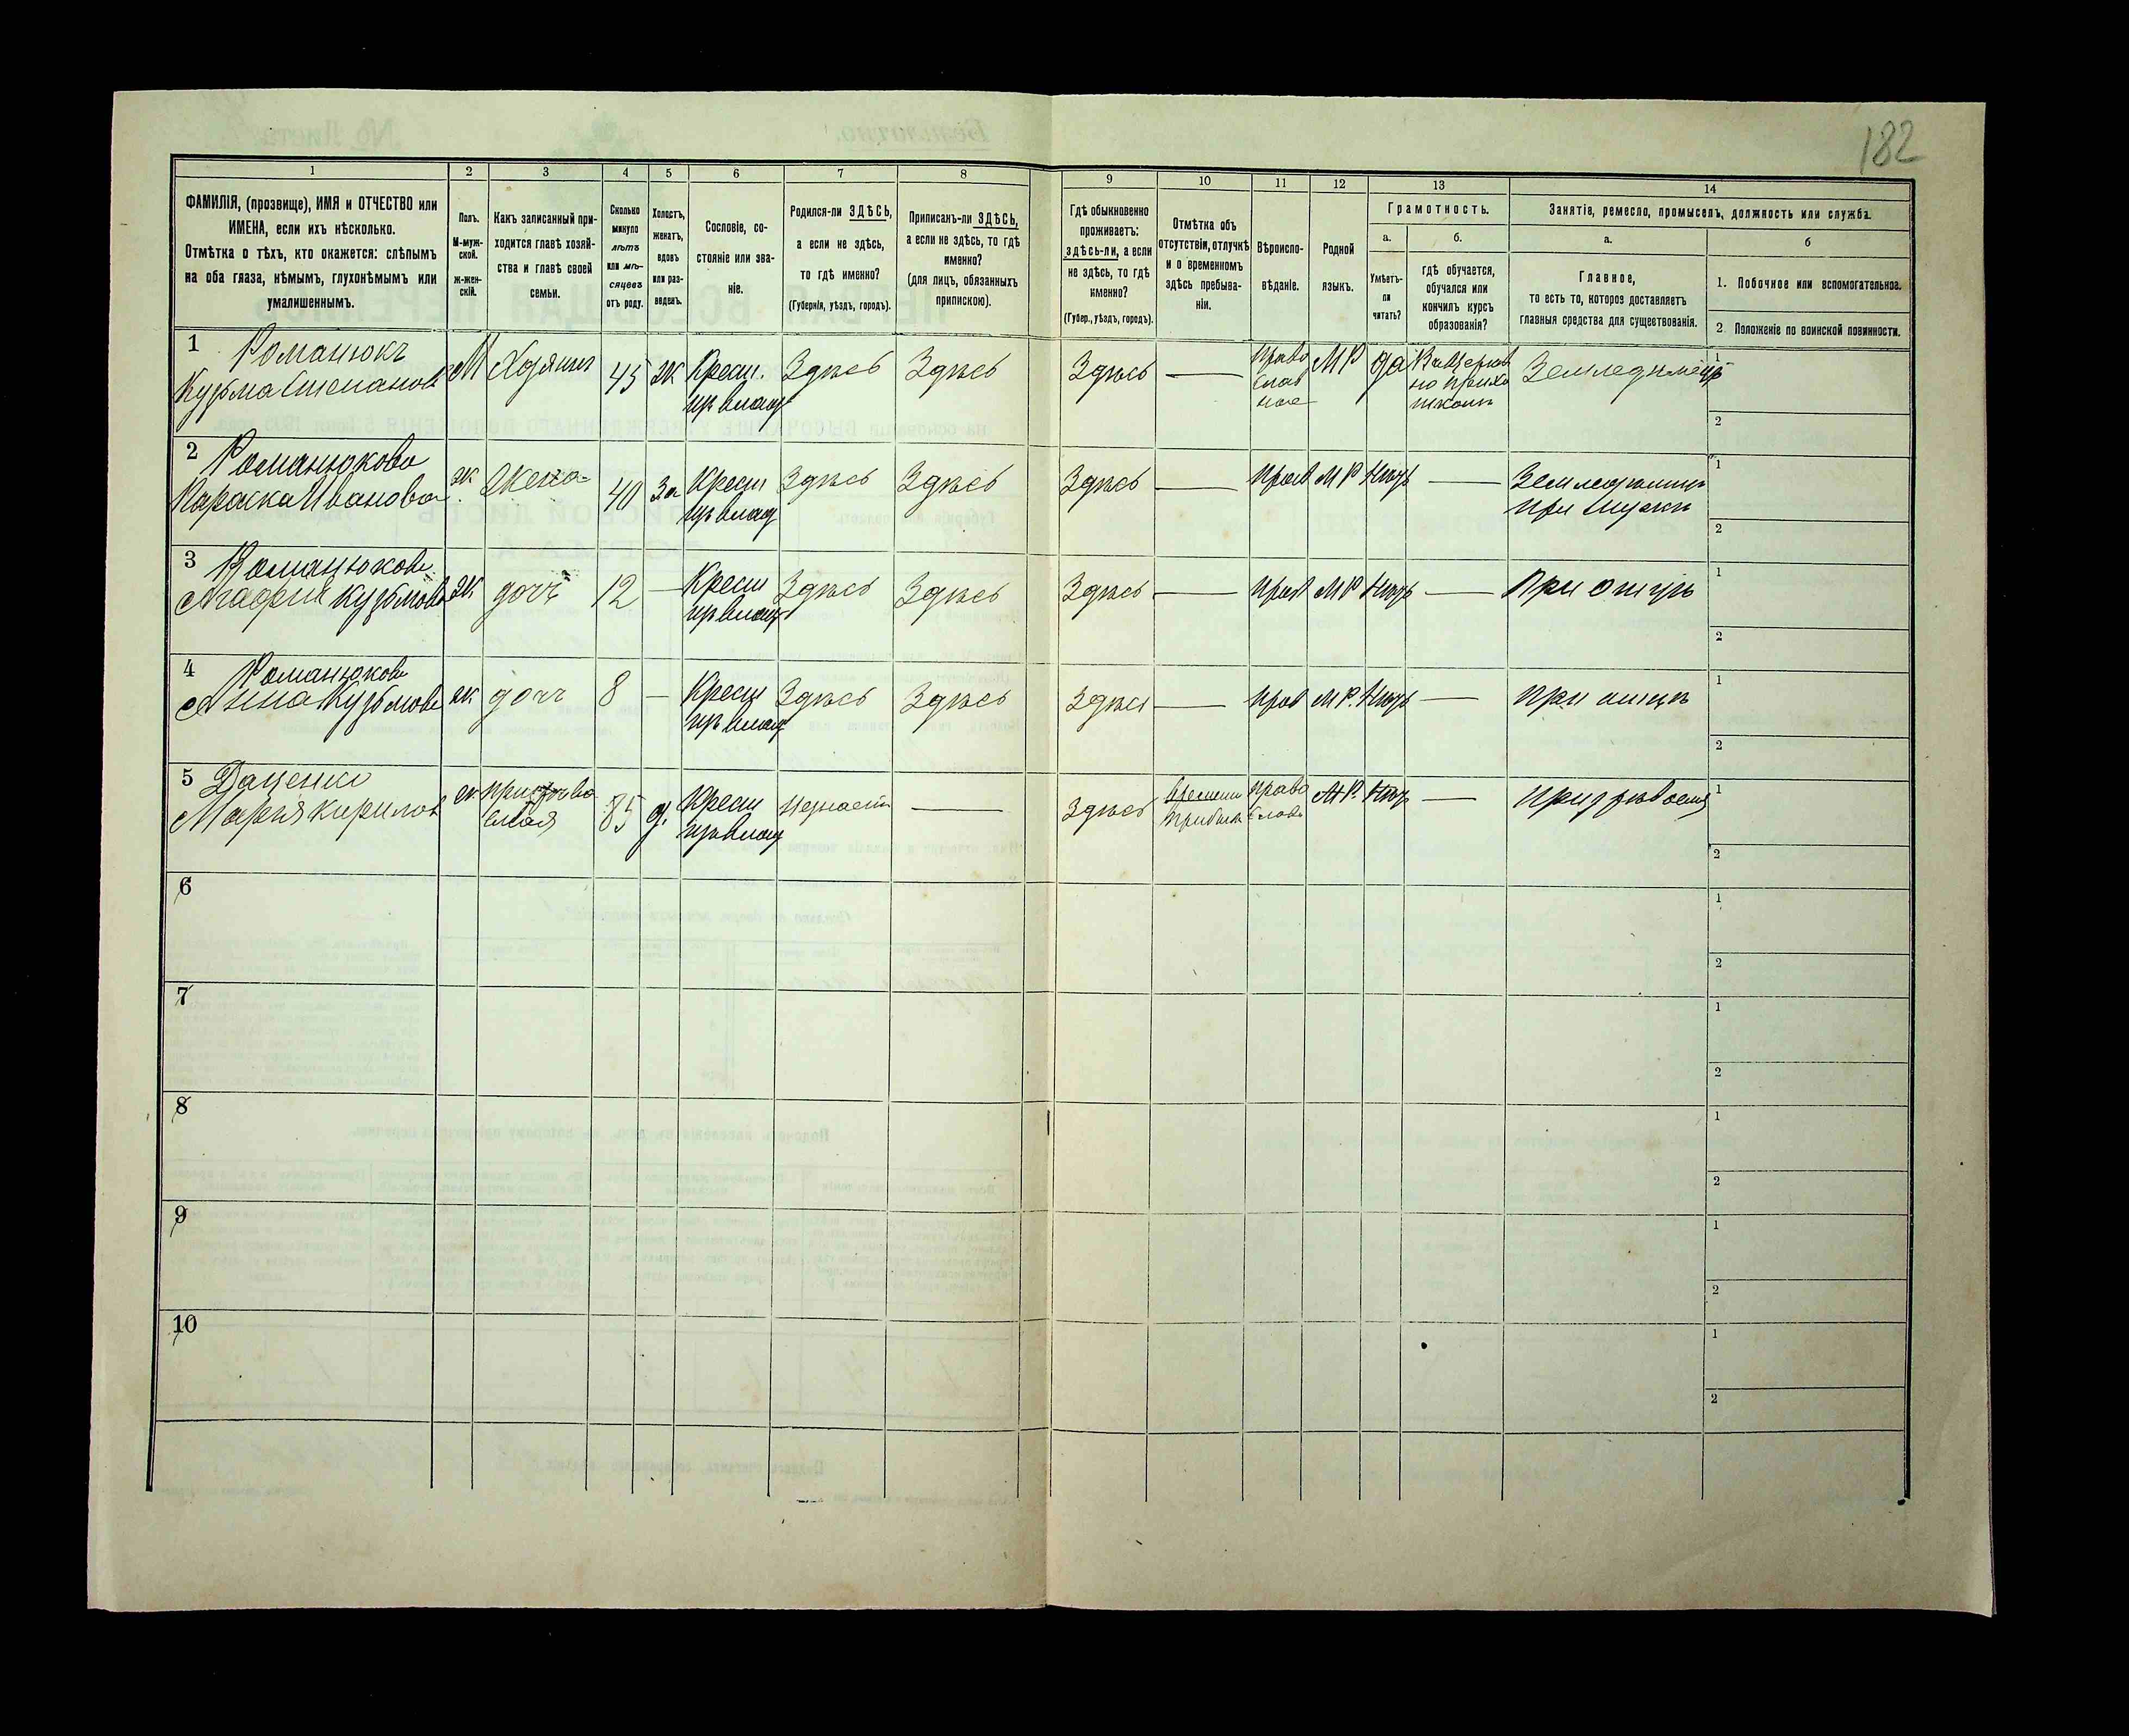 182
1 2 3 4 5 6 7 8 9 10 11 12 13 14
ФАМИЛІЯ, (прозвище), ИМЯ и ОТЧЕСТВО или
ИМЕНА, если ихъ нѣсколько.
Отмѣтка о тѣхъ, кто окажется: слѣпымъ
на оба глаза, нѣмымъ, глухонѣмымъ или
умалишеннымъ.
Полъ.
М-муж-
ской.
ж-жен-
скій.
Какъ записанный при-
ходится главѣ хозяй-
ства и главѣ своей
семьи.
Сколько
минуло
лѣтъ
или мѣ-
сяцевъ
отъ роду.
Холостъ,
женатъ,
вдовъ
или раз-
веденъ.
Сословіе, со-
стояніе или зва-
ніе.
Родился-ли ЗДѢСЬ,
а если не здѣсь,
то гдѣ именно?
(Губернія, уѣздъ, городъ).
Приписанъ-ли ЗДѢСЬ,
а если не здѣсь, то гдѣ
именно?
(для лицъ, обязанныхъ
припискою).
Гдѣ обыкновенно
проживаетъ:
здѣсь-ли, а если
не здѣсь, то гдѣ
именно?
(Губер., уѣздъ, городъ).
Отмѣтка объ
отсутствіи, отлучкѣ
и о временномъ
здѣсь пребыва-
ніи.
Вѣроиспо-
вѣданіе.
Родной
языкъ.
Грамотность.
а.
Умѣетъ-
ли
читать?
б.
гдѣ обучается,
обучался или
кончилъ курсъ
образованія?
Занятіе, ремесло, промыселъ, должность или служба.
а.
Главное,
то есть то, которое доставляетъ
главныя средства для существованія.
б
1. Побочное или вспомогательное.
2. Положеніе по воинской повинности.
1 Романюкъ
Кузьма Степановъ
М Хозяинъ 45 ж Крест. Здѣсь Здѣсь Здѣсь — право МР да
слав
ное
школѣ
Земледѣлецъ
1
2
2 Романюкова
Параска Иванова
ж. Жена 40 За Крест Здѣсь Здѣсь Здѣсь — Прав МР Нѣтъ —
при мужѣ
1
2
3 Романюкова
Агафия Кузьмова
ж дочь 12 — Крест Здѣсь Здѣсь Здѣсь — Прав МР Нѣтъ — При отцѣ
1
2
4 Романюкова
Анна Кузьмова
ж дочь 8 — Крест Здѣсь Здѣсь Здѣсь — Прав МР. Нѣтъ — При отцѣ
1
2
5 Даценко
Мария Кирилов
ж 85 Крест — Здѣсь право МР. Нѣтъ —
слав
1
2
6
1
2
7
1
2
8
1
2
9
1
2
10
1
2